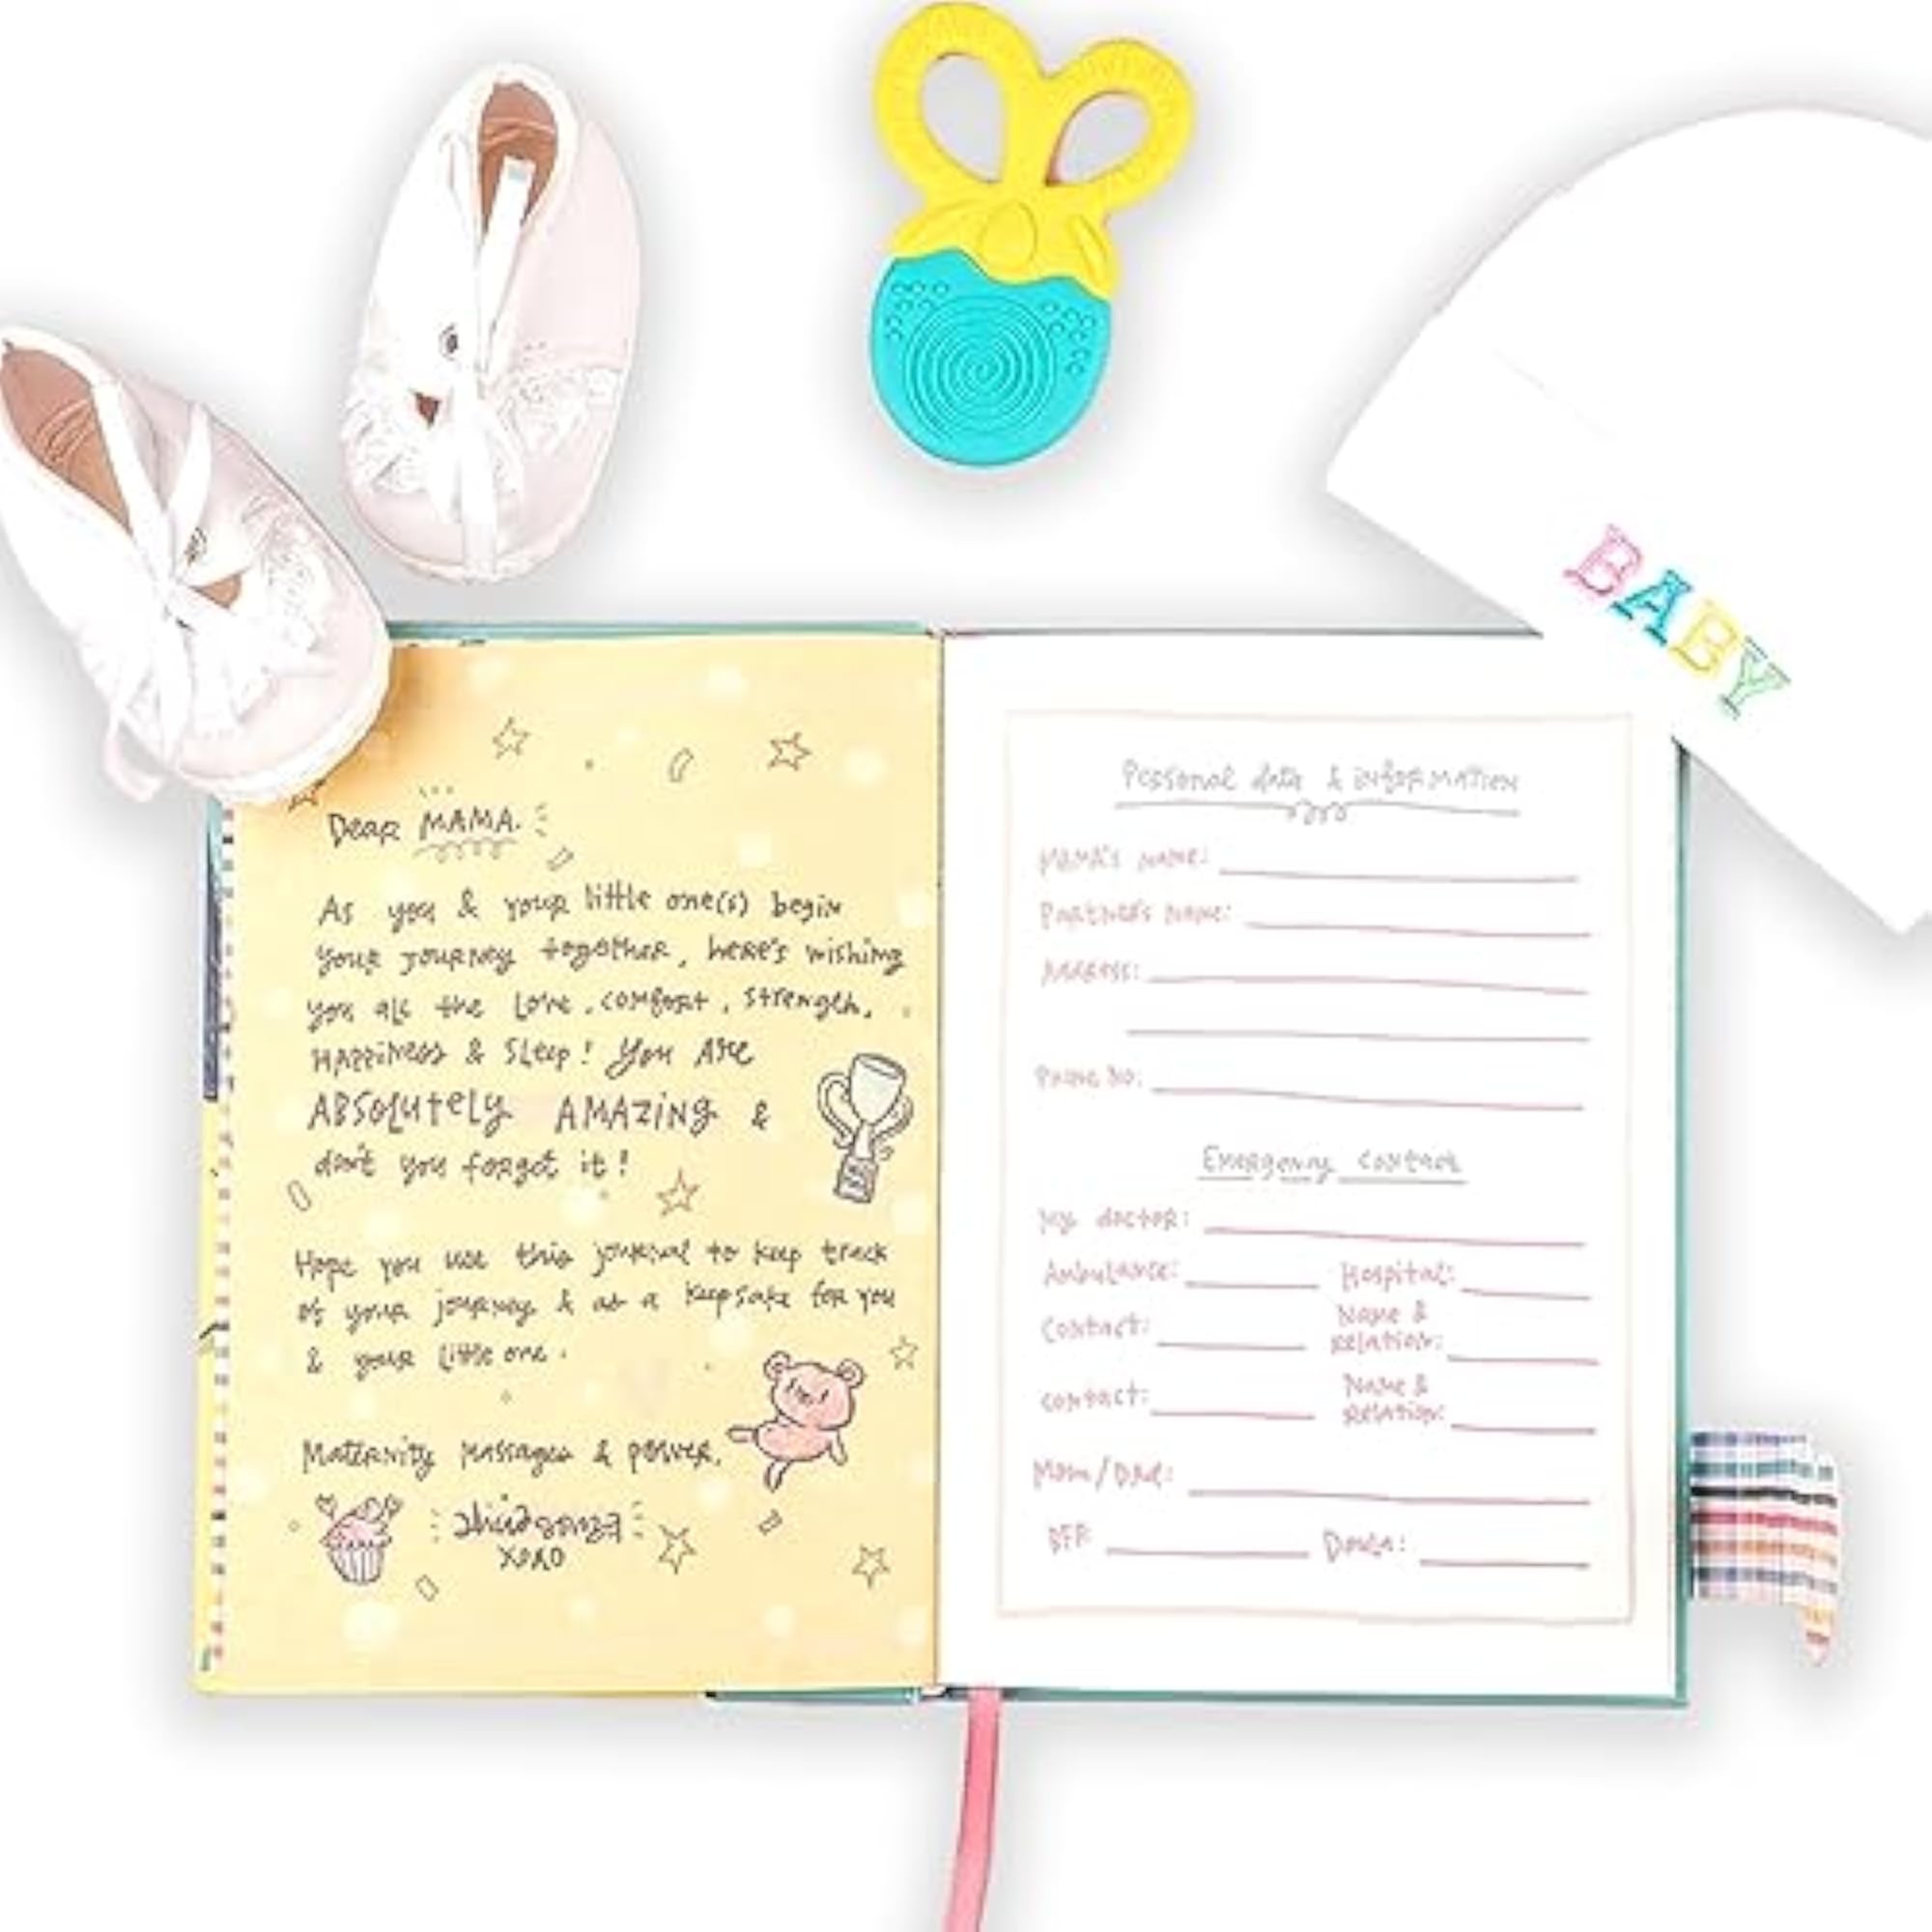 BABY
Dear MAMA.
As you & your little one(s) begin
your journey together, here's wishing
you all the love, comfort, strength,
HAPPINESS & SLEEP! You ARE
ABSOLUTELY AMAZING &
don't you forget it!
Hope you use this journal to keep track
of your journey & as a keepsake for you
& your little one.
Maternity massages & power,
xoxo
Personal data & information
MAMA's NAME:
Partner's Name:
Address:
Phone No:
Emergency contact
My doctor:
Ambulance: Hospital:
Contact: Name &
Relation:
contact: Name &
Relation:
Mom/Dad:
BFF: Doula: